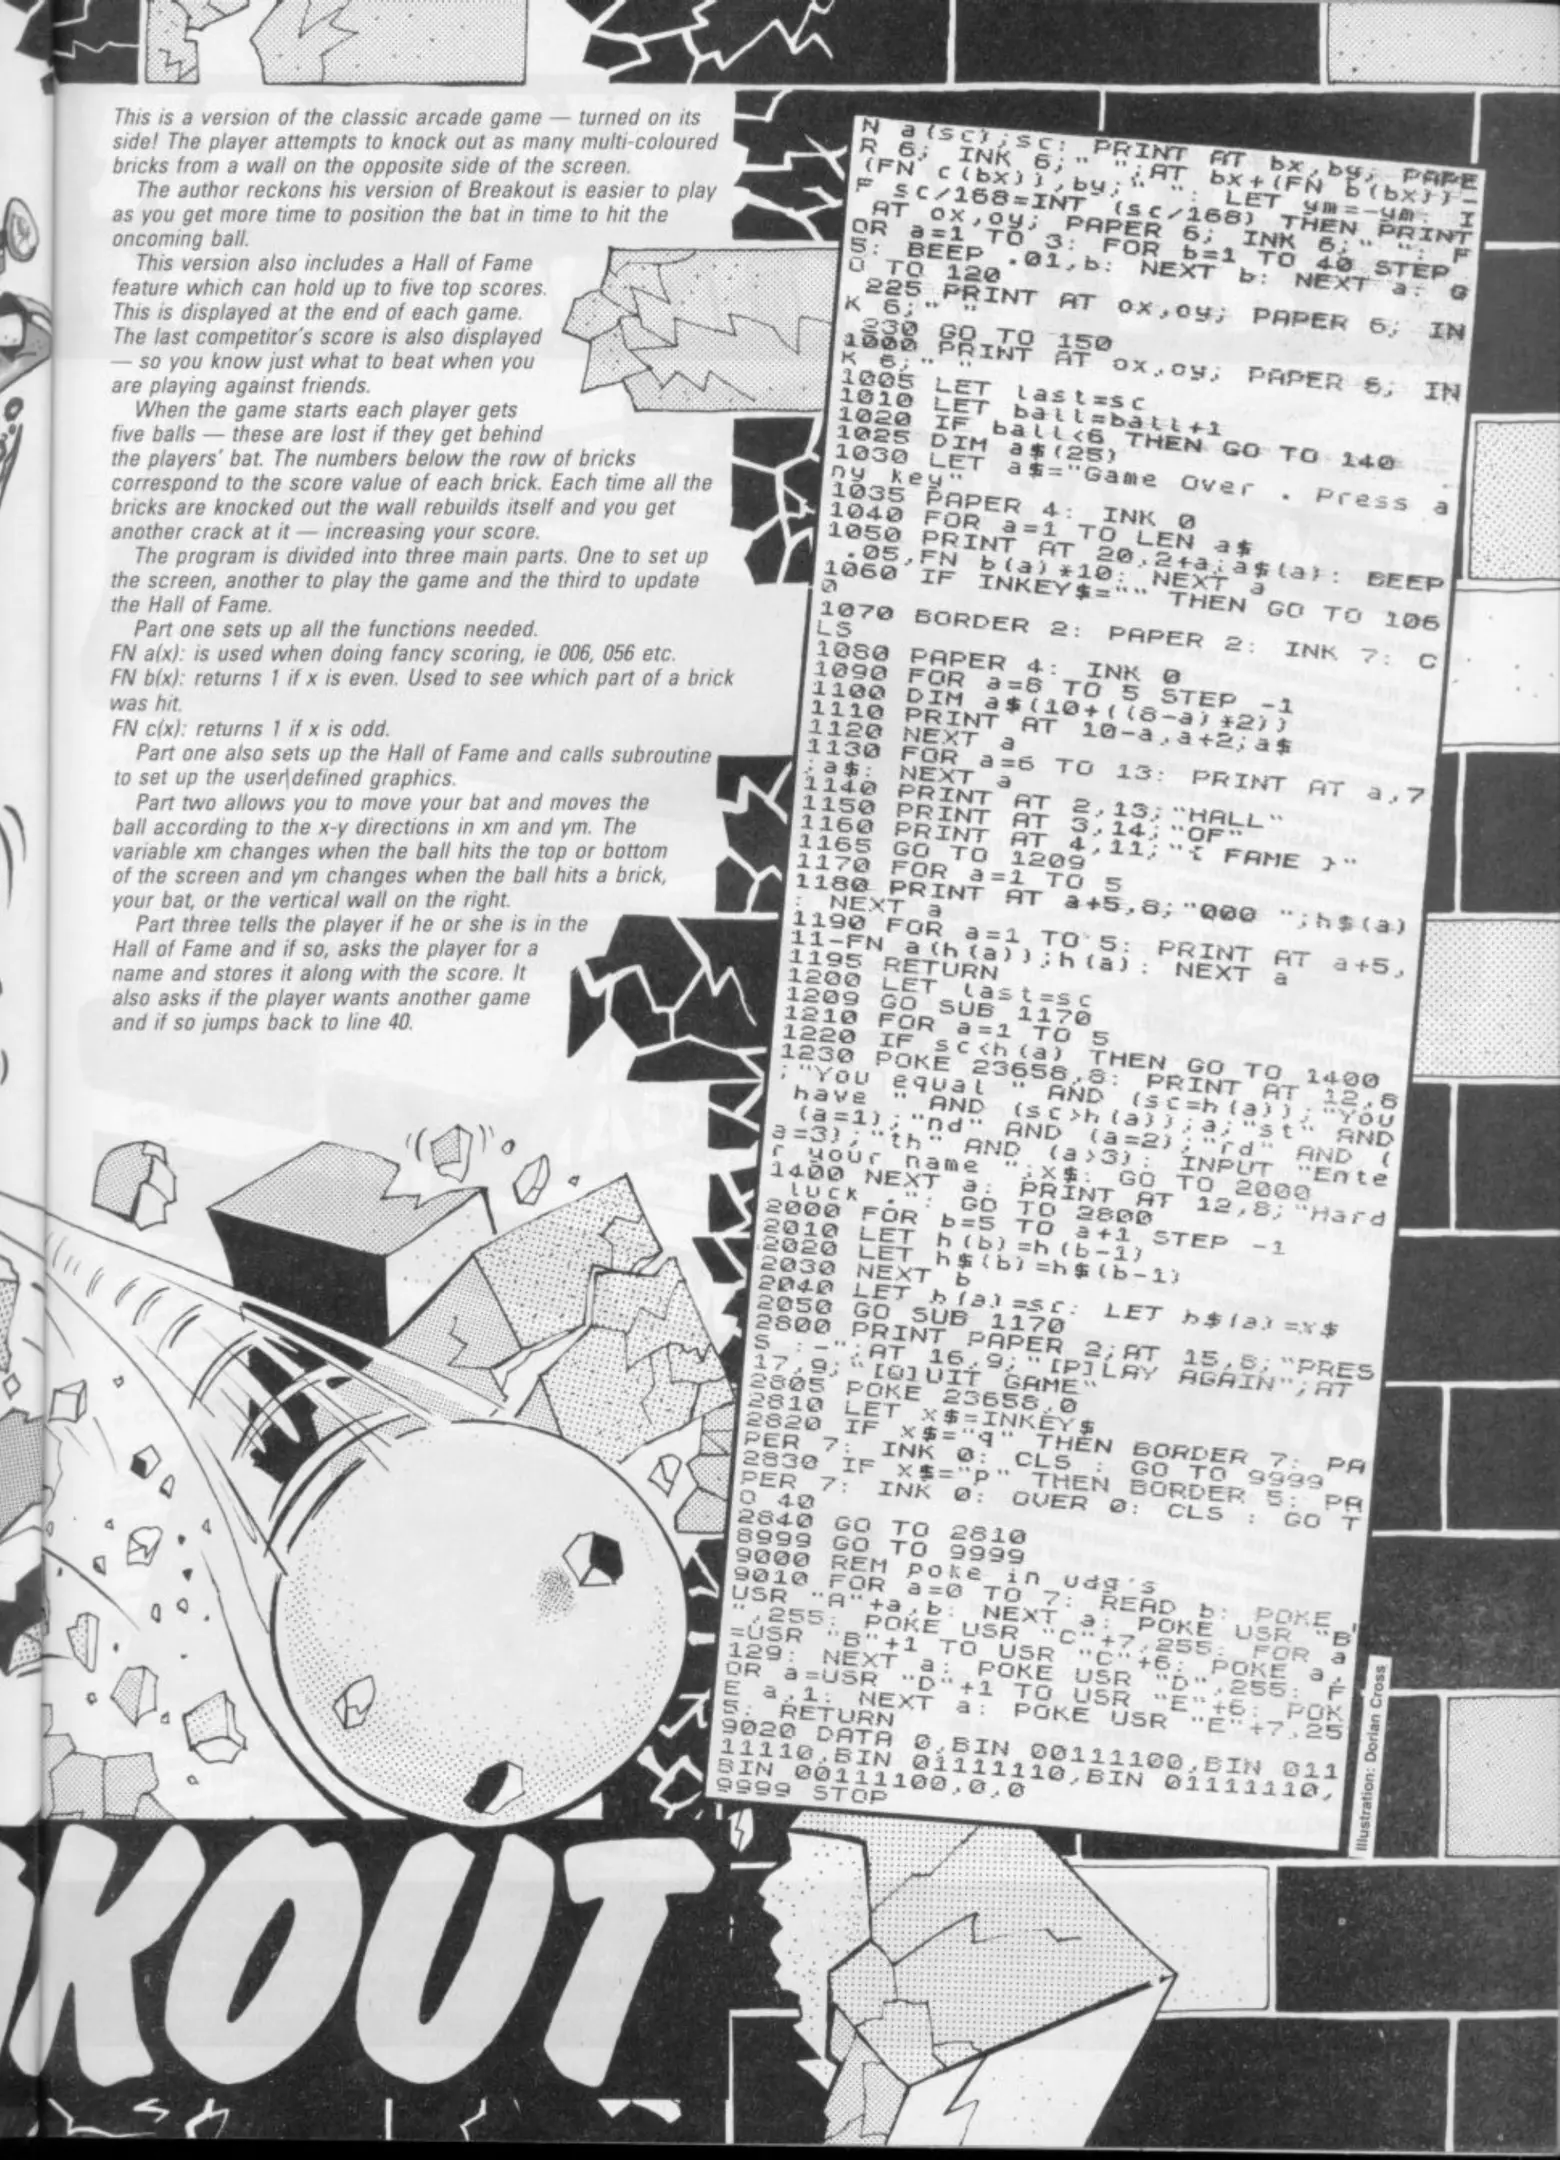 This is a version of the classic arcade game — turned on its
side! The player attempts to knock out as many multi-coloured
bricks from a wall on the opposite side of the screen.
The author reckons his version of Breakout is easier to play
as you get more time to position the bat in time to hit the
oncoming ball.
This version also includes a Hall of Fame
feature which can hold up to five top scores.
This is displayed at the end of each game.
The last competitor's score is also displayed
— so you know just what to beat when you
are playing against friends.
When the game starts each player gets
five balls — these are lost if they get behind
the players' bat. The numbers below the row of bricks
correspond to the score value of each brick. Each time all the
bricks are knocked out the wall rebuilds itself and you get
another crack at it — increasing your score.
The program is divided into three main parts. One to set up
the screen, another to play the game and the third to update
the Hall of Fame.
Part one sets up all the functions needed.
FN a(x): is used when doing fancy scoring, ie 006, 056 etc.
FN b(x): returns 1 if x is even. Used to see which part of a brick
was hit.
FN c(x): returns 1 if x is odd.
Part one also sets up the Hall of Fame and calls subroutine
to set up the user\defined graphics.
Part two allows you to move your bat and moves the
ball according to the x-y directions in xm and ym. The
variable xm changes when the ball hits the top or bottom
of the screen and ym changes when the ball hits a brick,
your bat, or the vertical wall on the right.
Part three tells the player if he or she is in the
Hall of Fame and if so, asks the player for a
name and stores it along with the score. It
also asks if the player wants another game
and if so jumps back to line 40.
N a(sc);sc: PRINT AT bx,by; PAPE
R 6; INK 6;" ";AT bx+(FN b(bx))-
(FN c(bx)),by;" ": LET ym=-ym: I
F sc/168=INT (sc/168) THEN PRINT
AT ox,oy; PAPER 6; INK 6;" ": F
OR a=1 TO 3: FOR b=1 TO 40 STEP
5: BEEP .01,b: NEXT b: NEXT a: G
O TO 120
225 PRINT AT ox,oy; PAPER 6; IN
K 6;" "
230 GO TO 150
1000 PRINT AT ox,oy; PAPER 6; IN
K 6;" "
1005 LET last=sc
1010 LET ball=ball+1
1020 IF ball<6 THEN GO TO 140
1025 DIM a$(25)
1030 LET a$="Game Over . Press a
ny key"
1035 PAPER 4: INK 0
1040 FOR a=1 TO LEN a$
1050 PRINT AT 20,2+a;a$(a): BEEP
.05,FN b(a)*10: NEXT a
1060 IF INKEY$="" THEN GO TO 106
0
1070 BORDER 2: PAPER 2: INK 7: C
LS
1080 PAPER 4: INK 0
1090 FOR a=8 TO 5 STEP -1
1100 DIM a$(10+((8-a)*2))
1110 PRINT AT 10-a,a+2;a$
1120 NEXT a
1130 FOR a=6 TO 13: PRINT AT a,7
;a$: NEXT a
1140 PRINT AT 2,13;"HALL"
1150 PRINT AT 3,14;"OF"
1160 PRINT AT 4,11;"{ FAME }"
1165 GO TO 1209
1170 FOR a=1 TO 5
1180 PRINT AT a+5,8;"000 ";h$(a)
: NEXT a
1190 FOR a=1 TO 5: PRINT AT a+5,
11-FN a(h(a));h(a): NEXT a
1195 RETURN
1200 LET last=sc
1209 GO SUB 1170
1210 FOR a=1 TO 5
1220 IF sc<h(a) THEN GO TO 1400
1230 POKE 23658,8: PRINT AT 12,8
;"You equal " AND (sc=h(a));"You
have " AND (sc>h(a));a;"st" AND
(a=1);"nd" AND (a=2);"rd" AND (
a=3);"th" AND (a>3): INPUT "Ente
r your name ";x$: GO TO 2000
1400 NEXT a: PRINT AT 12,8;"Hard
luck .": GO TO 2800
2000 FOR b=5 TO a+1 STEP -1
2010 LET h(b)=h(b-1)
2020 LET h$(b)=h$(b-1)
2030 NEXT b
2040 LET h(a)=sc: LET h$(a)=x$
2050 GO SUB 1170
2800 PRINT PAPER 2;AT 15,8;"PRES
S :-";AT 16,9;"[P]LAY AGAIN";AT
17,9;"[Q]UIT GAME"
2805 POKE 23658,0
2810 LET x$=INKEY$
2820 IF x$="q" THEN BORDER 7: PA
PER 7: INK 0: CLS : GO TO 9999
2830 IF x$="p" THEN BORDER 5: PA
PER 7: INK 0: OVER 0: CLS : GO T
O 40
2840 GO TO 2810
8999 GO TO 9999
9000 REM poke in udg's
9010 FOR a=0 TO 7: READ b: POKE
USR "A"+a,b: NEXT a: POKE USR "B
",255: POKE USR "C"+7,255: FOR a
=USR "B"+1 TO USR "C"+6: POKE a,
129: NEXT a: POKE USR "D",255: F
OR a=USR "D"+1 TO USR "E"+6: POK
E a,1: NEXT a: POKE USR "E"+7,25
5: RETURN
9020 DATA 0,BIN 00111100,BIN 011
11110,BIN 01111110,BIN 01111110,
BIN 00111100,0,0
9999 STOP
Illustration: Dorian Cross
KOUT